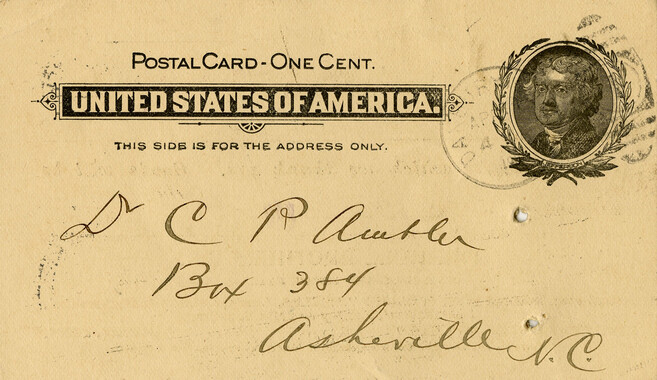 POSTAL CARD - ONE CENT.
UNITED STATES OF AMERICA.
THIS SIDE IS FOR THE ADDRESS ONLY.
Dr C P Ambler
Box 384
Asheville N.C.